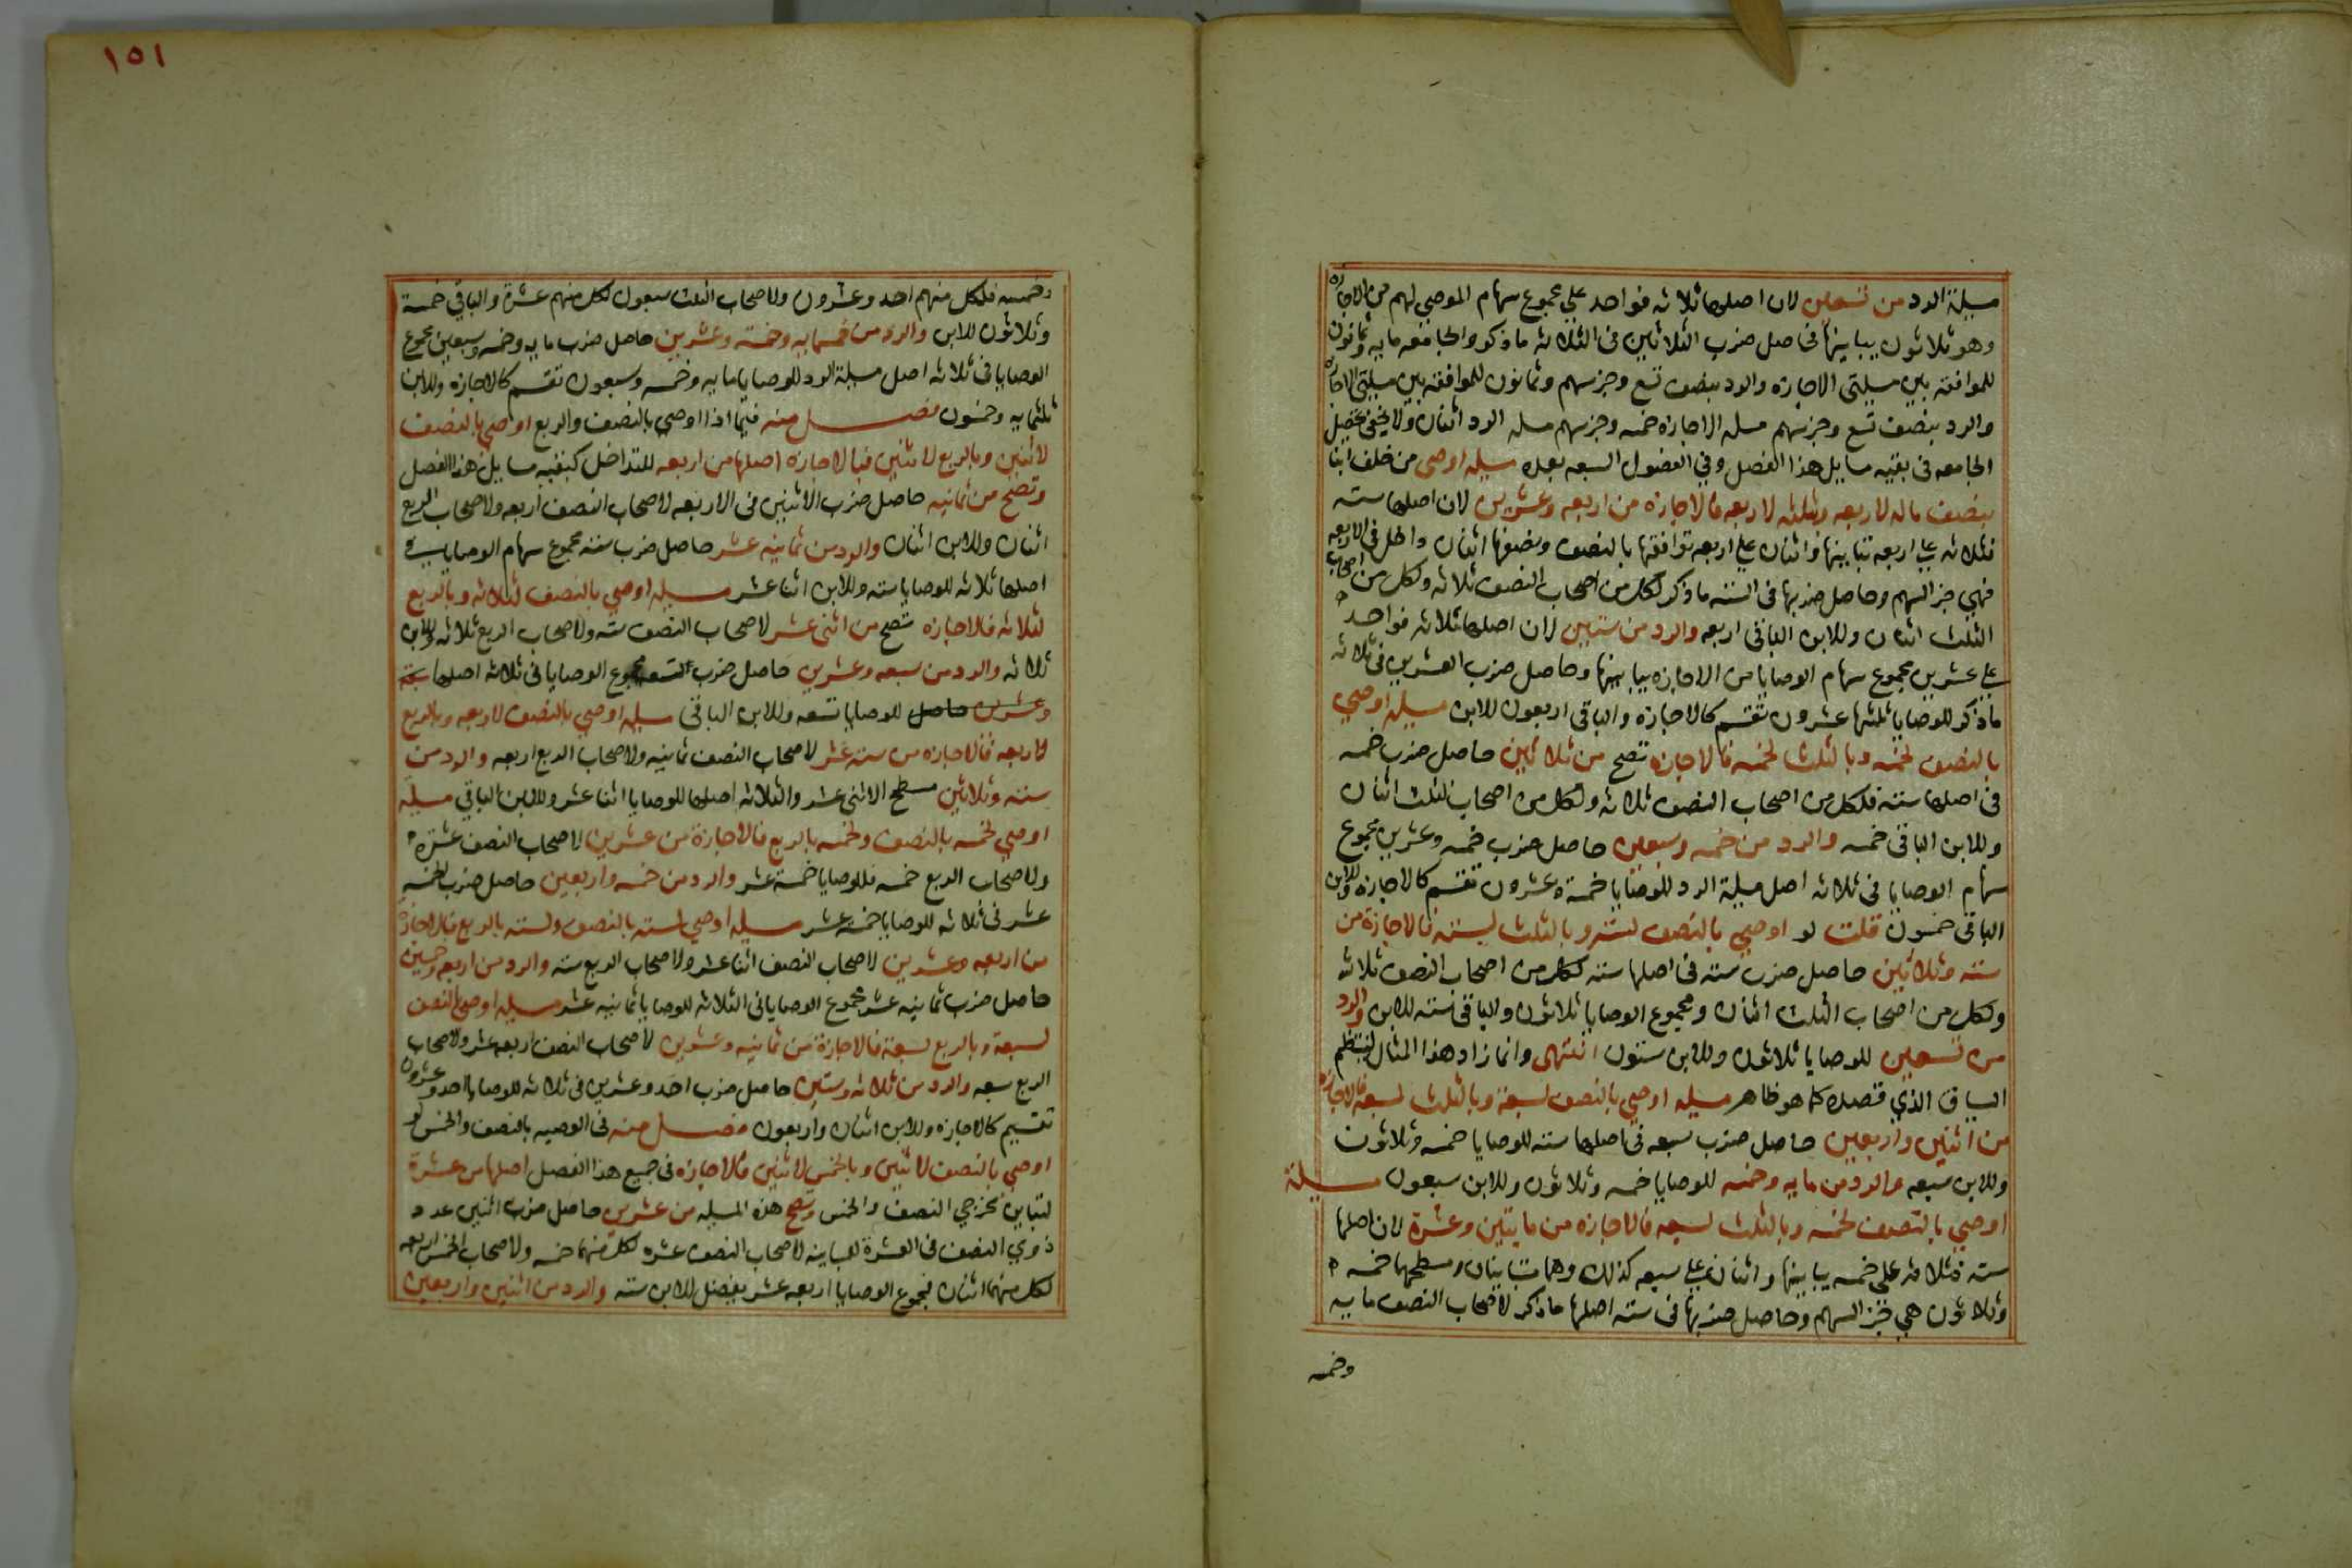 مسيلة الرد من تسعين لان اصلها ثلاثه فواحد علي مجموع سهام الموصي لهم من الاجازه
وهو ثلاثون يباينها فحاصل ضرب الثلاثين فى الثلاثه ماذكر والجامعه مايه وثمانون
للموافقه بين مسيلتي الاجازه والرد بنصف تسع وجز سهم وثمانون للموافقه بين مسيلتي الاجازه
والرد بنصف تسع وجز سهم مسله الاجازه خمسه وجز سهم مسله الرد اثنان ولا يخفى تحصيل
الجامعه فى بقيه مسايل هذا الفصل وفي الفصول السبعه بعده مسيله اوصى من خلف ابنا
بنصف ماله لاربعه وثلثه لاربعه فالاجازه من اربعه وعشرين لان اصلها سته
فثلاثه علي اربعه تباينها واثنان علي اربعه توافقها بالنصف ونصفها اثنان داخل فى الاربعه
فهي جز السهم وحاصل ضربها فى السته ماذكر لكل من اصحاب النصف ثلاثه ولكل من اصحاب
الثلث اثنان وللابن الباقى اربعه والرد من ستين لان اصلها ثلاثه فواحد
علي عشرين مجموع سهام الوصايا من الاجازه يباينها وحاصل ضرب العشرين فى ثلاثه
ماذكر للوصايا ثلثها عشرون تقسم كالاجازه والباقى اربعون للابن مسيله اوصي
بالنصف لخمسه وبالثلث لخمسه فالاجازه تصح من ثلاثين حاصل ضرب خمسه
فى اصلها سته فلكل من اصحاب النصف ثلاثه ولكل من اصحاب الثلث اثنان
وللابن الباقى خمسه والرد من خمسه وسبعين حاصل ضرب خمسه وعشرين مجموع
سهام الوصايا فى ثلاثه اصل مسيلة الرد للوصايا خمسة وعشرون تقسم كالاجازه وللابن
الباقى خمسون قلت لو اوصي بالنصف لسته وبالثلث لسته فالاجازة من
سته وثلاثين حاصل ضرب سته فى اصلها سته لكل من اصحاب النصف ثلاثه
ولكل من اصحاب الثلث اثنان ومجموع الوصايا ثلاثون والباقى سته للابن والرد
من تسعين للوصايا ثلاثون وللابن ستون انتهى وانما زاد هذا المثال لينتظم
السياق الذي قصده كما هو ظاهر مسيله اوصي بالنصف لسبعة وبالثلث لسبعه فالاجازه
من اثنين واربعين حاصل ضرب سبعه فى اصلها سته للوصايا خمسه وثلاثون
وللابن سبعه والرد من مايه وخمسه للوصايا خمسه وثلاثون وللابن سبعون مسيلة
اوصي بالنصف لخمسه وبالثلث لسبعه فالاجازه من مايتين وعشرة لان اصلها
سته فثلاثه على خمسه يباينها واثنان علي سبعه كذلك وهما متباينان ومسطحهما خمسه
وثلاثون هي جز السهم وحاصل ضربها فى سته اصلها ماذكر لاصحاب النصف مايه
وخمسه
١٥١
وخمسه فلكل منهم احد وعشرون ولاصحاب الثلث سبعون لكل منهم عشرة والباقي خمسة
وثلاثون للابن والرد من خمسمايه وخمسة وعشرين حاصل ضرب مايه وخمسه وسبعين مجموع
الوصايا فى ثلاثه اصل مسيلة الرد للوصايا مايه وخمسه وسبعون تقسم كالاجازه وللابن
ثلثمايه وخمسون فصل منه فيما اذا اوصي بالنصف والربع اوصي بالنصف
لاثنين وبالربع لاثنين فبالاجازه اصلها من اربعه للتداخل كبقيه مسايل هذا الفصل
وتصح من ثمانيه حاصل ضرب الاثنين فى الاربعه لاصحاب النصف اربعه ولاصحاب الربع
اثنان وللابن اثنان والرد من ثمانيه عشر حاصل ضرب سته مجموع سهام الوصايا فى
اصلها ثلاثه للوصايا سته وللابن اثنا عشر مسيله اوصي بالنصف لثلاثه وبالربع
لثلاثه فالاجازه تصح من اثنى عشر لاصحاب النصف سته ولاصحاب الربع ثلاثه وللابن
ثلاثه والرد من سبعه وعشرين حاصل ضرب التسعه مجموع الوصايا فى ثلاثه اصلها سبعة
وعشرون حاصل للوصايا تسعه وللابن الباقى مسيله اوصي بالنصف لاربعه وبالربع
لاربعه فالاجازه من سته عشر لاصحاب النصف ثمانيه ولاصحاب الربع اربعه والرد من
سته وثلاثين مسطح الاثنى عشر والثلاثه اصلها للوصايا اثنا عشر وللابن الباقي مسيله
اوصي لخمسه بالنصف ولخمسه بالربع فالاجازة من عشرين لاصحاب النصف عشرة
ولاصحاب الربع خمسه فللوصايا خمسة عشر والرد من خمسه واربعين حاصل ضرب الخمسه
عشر فى ثلاثه للوصايا خمسه عشر مسيله اوصي لسته بالنصف ولسته بالربع فالاجازة
من اربعه وعشرين لاصحاب النصف اثنا عشر ولاصحاب الربع سته والرد من اربعه وخمسين
حاصل ضرب ثمانيه عشر مجموع الوصايا فى الثلاثه للوصايا ثمانيه عشر مسيله اوصي بالنصف
لسبعة وبالربع لسبعة فالاجازة من ثمانيه وعشرين لاصحاب النصف اربعه عشر ولاصحاب
الربع سبعه والرد من ثلاثه وستين حاصل ضرب احد وعشرين فى ثلاثه للوصايا احد وعشرون
تقسيم كالاجازه وللابن اثنان واربعون فصل منه فى الوصيه بالنصف والخمس لو
اوصي بالنصف لاثنين وبالخمس لاثنين فالاجازه فى جميع هذا الفصل اصلها من عشرة
لتباين مخرجي النصف والخمس وتصح هذه المسيله من عشرين حاصل ضرب اثنين عدد
ذوي النصف فى العشرة للمباينه لاصحاب النصف عشره لكل منهما خمسه ولاصحاب الخمس اربعه
لكل منهما اثنان فمجموع الوصايا اربعه عشر يفضل للابن سته والرد من اثنين واربعين